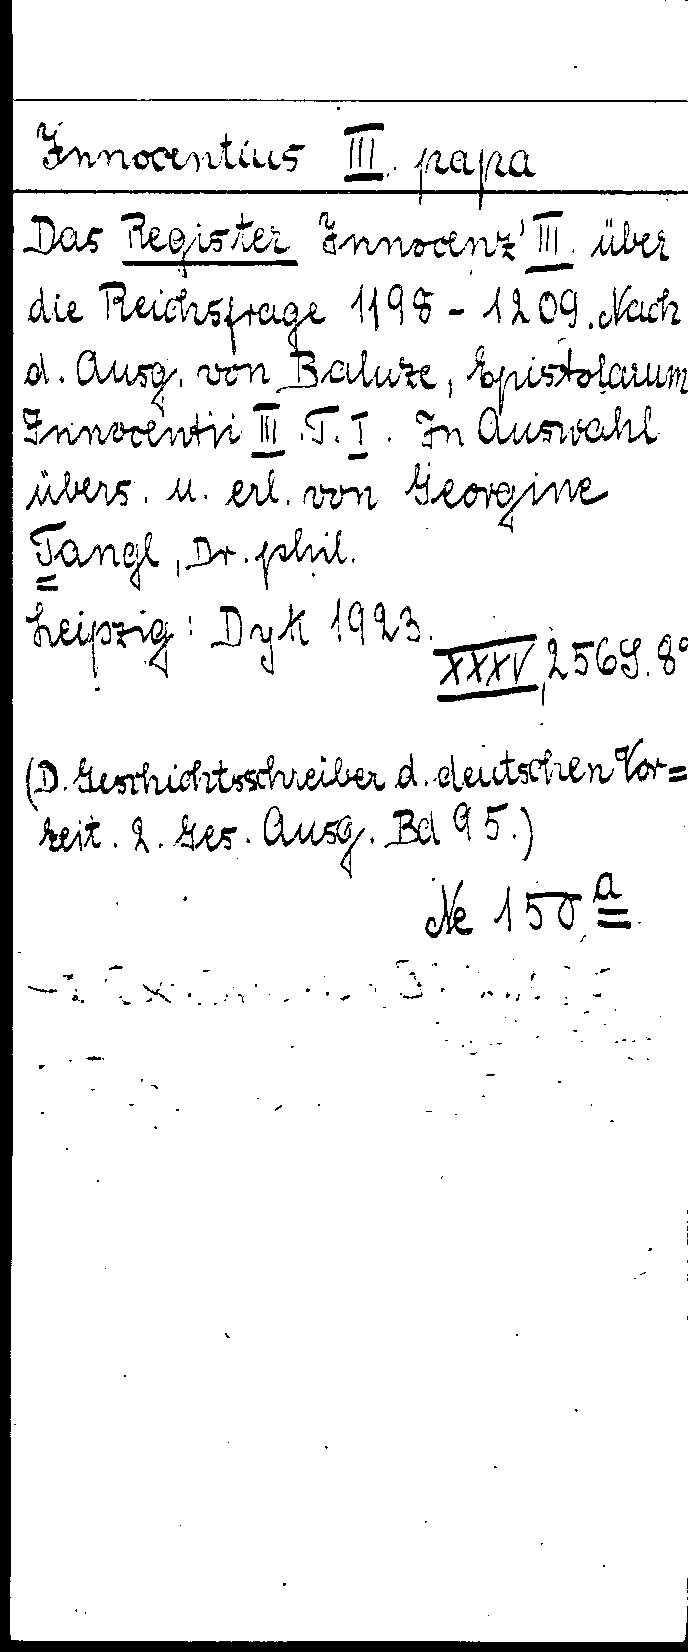 Innocentius III. papa
Das Register Innocenz' III. über
die Reichsfrage 1198 - 1209. Nach
d. Ausg. von Baluze, Epistolarum
Innocentii III. T. I. In Auswahl
übers. u. erl. von Georgine
Tangl, Dr. phil.
Leipzig: Dyk 1923.
XXXV, 256 S. 8°
(D. Geschichtsschreiber d. deutschen Vor=
zeit. 2. Ges. Ausg. Bd 95.)
Ne 150 a